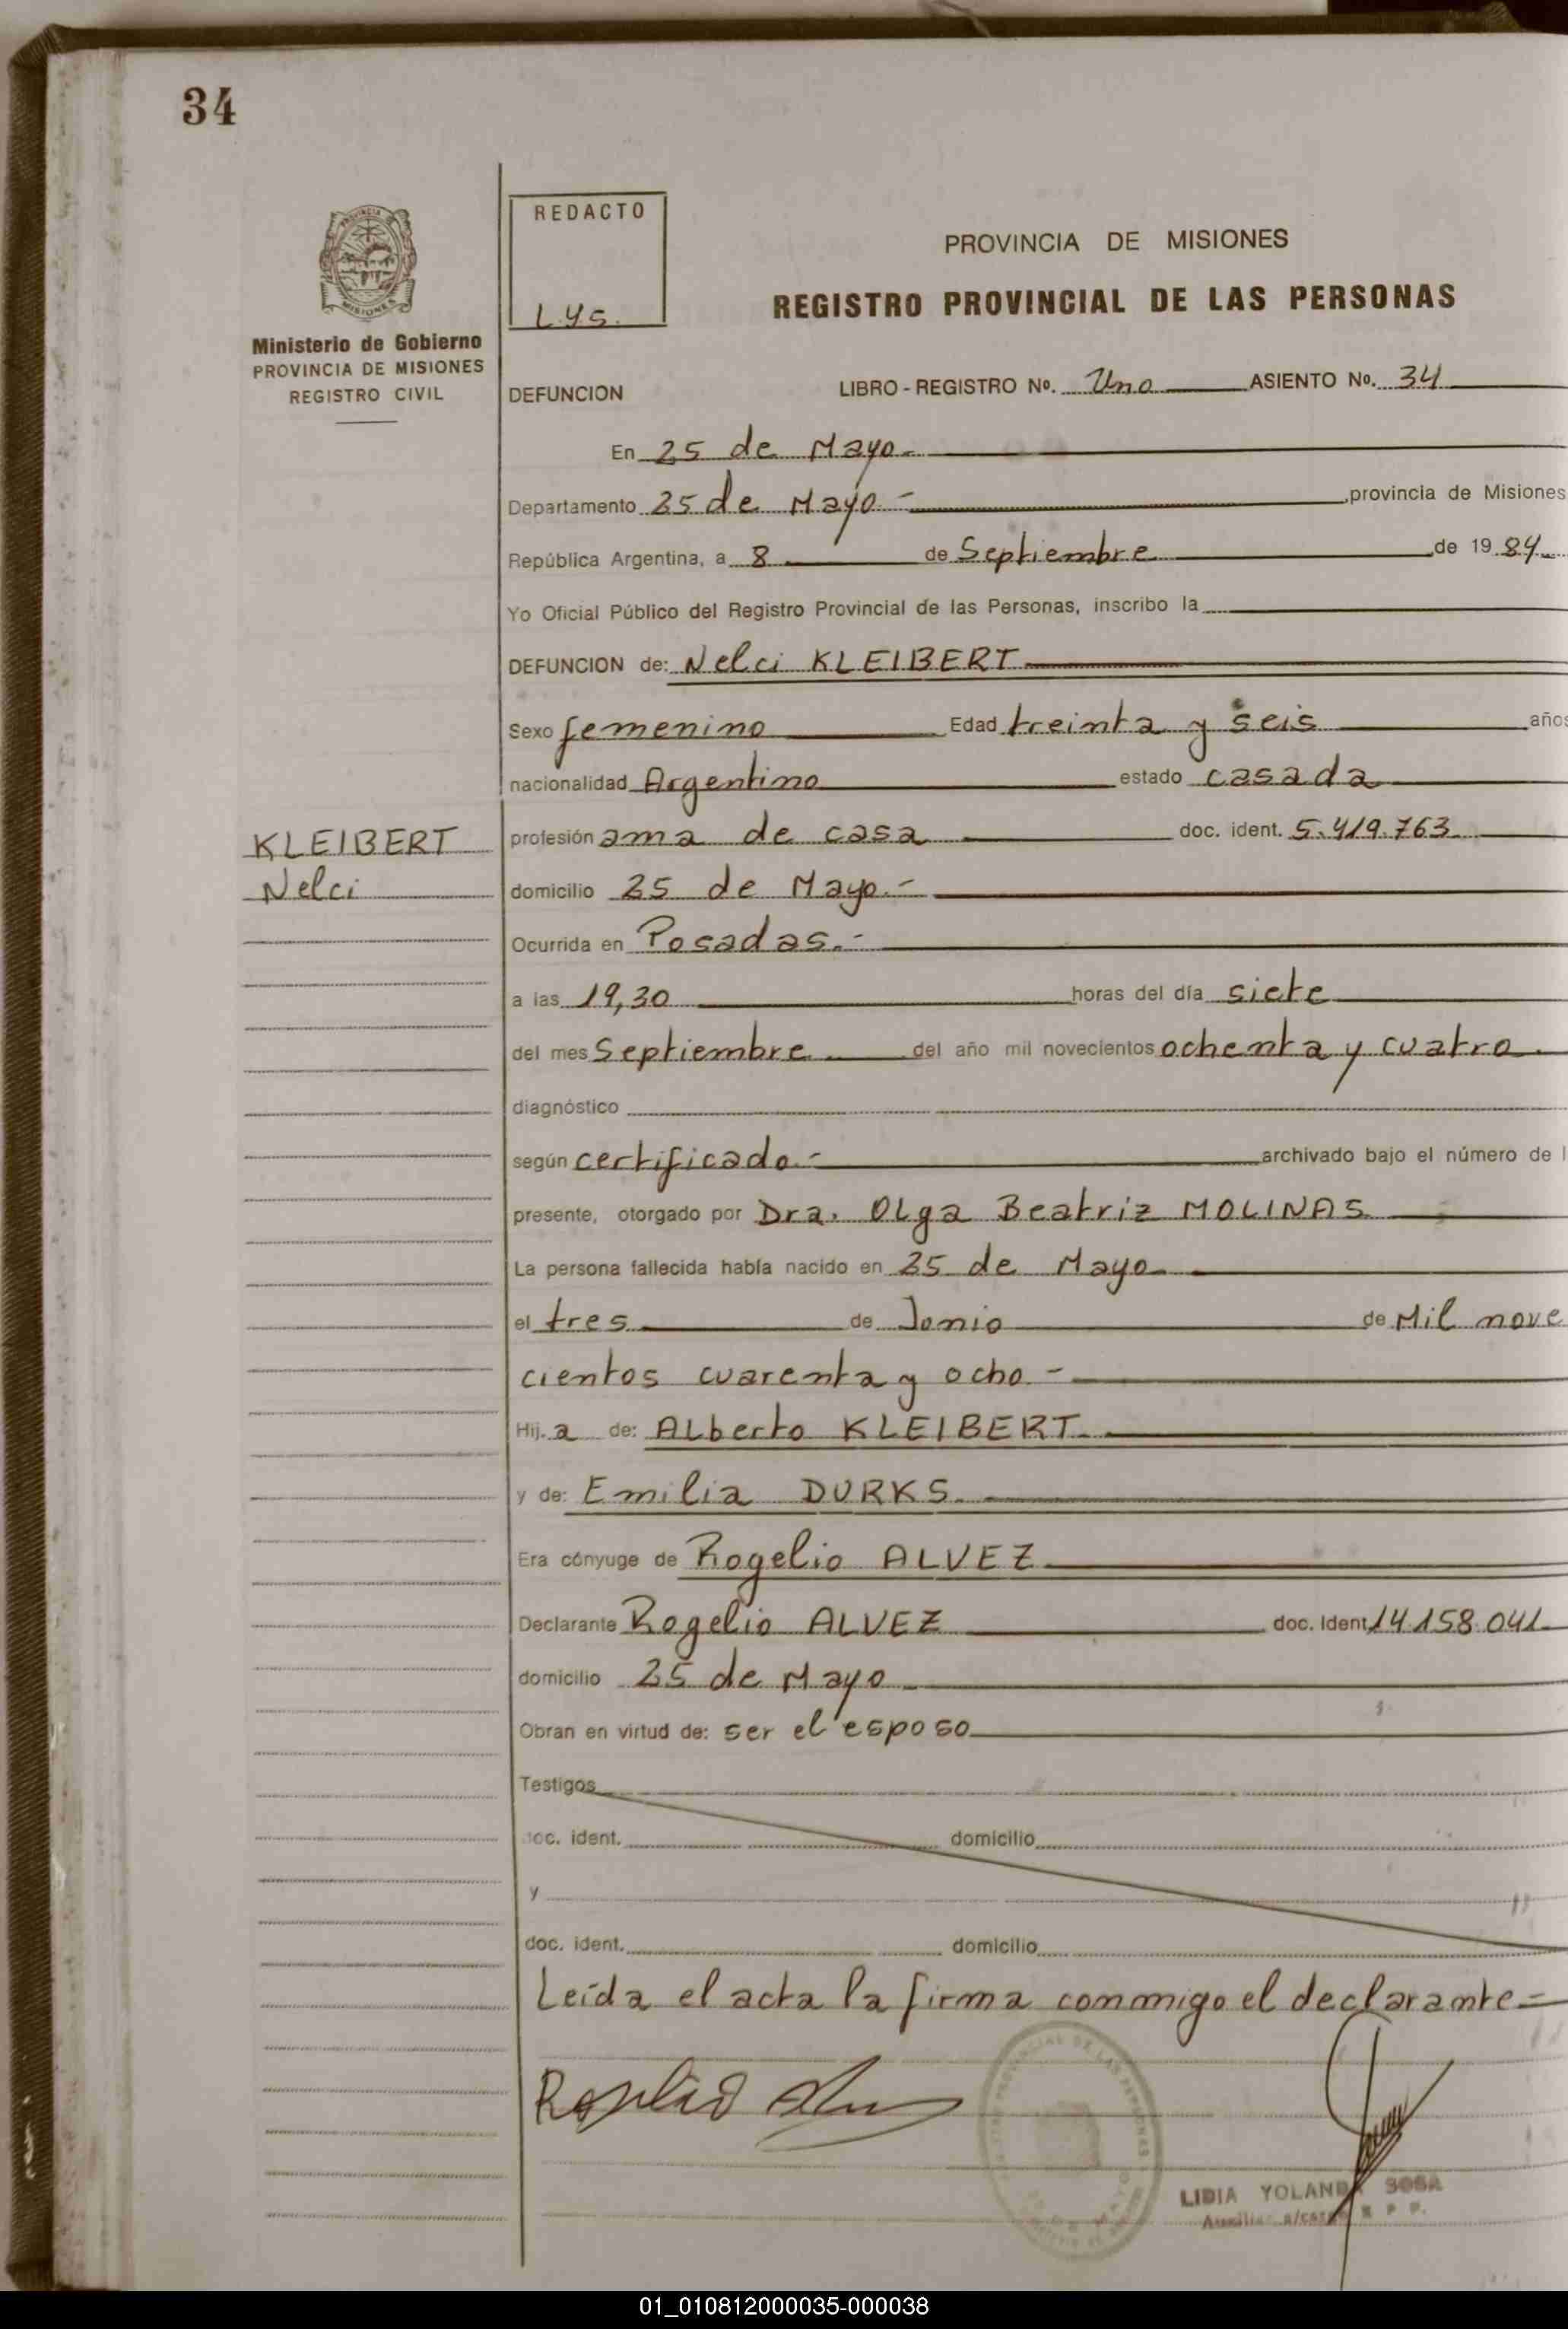 34
PROVINCIA
MISIONES
Ministerio de Gobierno
PROVINCIA DE MISIONES
REGISTRO CIVIL
REDACTO
L.Y.S.
PROVINCIA DE MISIONES
REGISTRO PROVINCIAL DE LAS PERSONAS
DEFUNCION LIBRO - REGISTRO Nº. Uno ASIENTO No. 34
En 25 de Mayo.
Departamento 25 de Mayo.- provincia de Misiones
República Argentina, a 8 de Septiembre de 19 84
Yo Oficial Público del Registro Provincial de las Personas, inscribo la
DEFUNCION de: Nelci KLEIBERT
Sexo femenino Edad treinta y seis años
nacionalidad Argentino estado casada
profesión ama de casa doc. ident. 5.419.763
KLEIBERT
Nelci
domicilio 25 de Mayo.-
Ocurrida en Posadas.-
a las 19,30 horas del día siete
del mes Septiembre del año mil novecientos ochenta y cuatro.
diagnóstico
según certificado.- archivado bajo el número de l
presente, otorgado por Dra. Olga Beatriz MOLINAS
La persona fallecida había nacido en 25 de Mayo
el tres de Junio de Mil nove
cientos cuarenta y ocho -
Hij.a de: Alberto KLEIBERT.
y de: Emilia DURKS.
Era cónyuge de Rogelio ALVEZ
Declarante Rogelio ALVEZ doc. Ident 14.158.041
domicilio 25 de Mayo
Obran en virtud de: ser el esposo
Testigos
doc. ident. domicilio
y
doc. ident. domicilio
Leída el acta la firma conmigo el declarante=
LIDIA YOLANDA SOSA